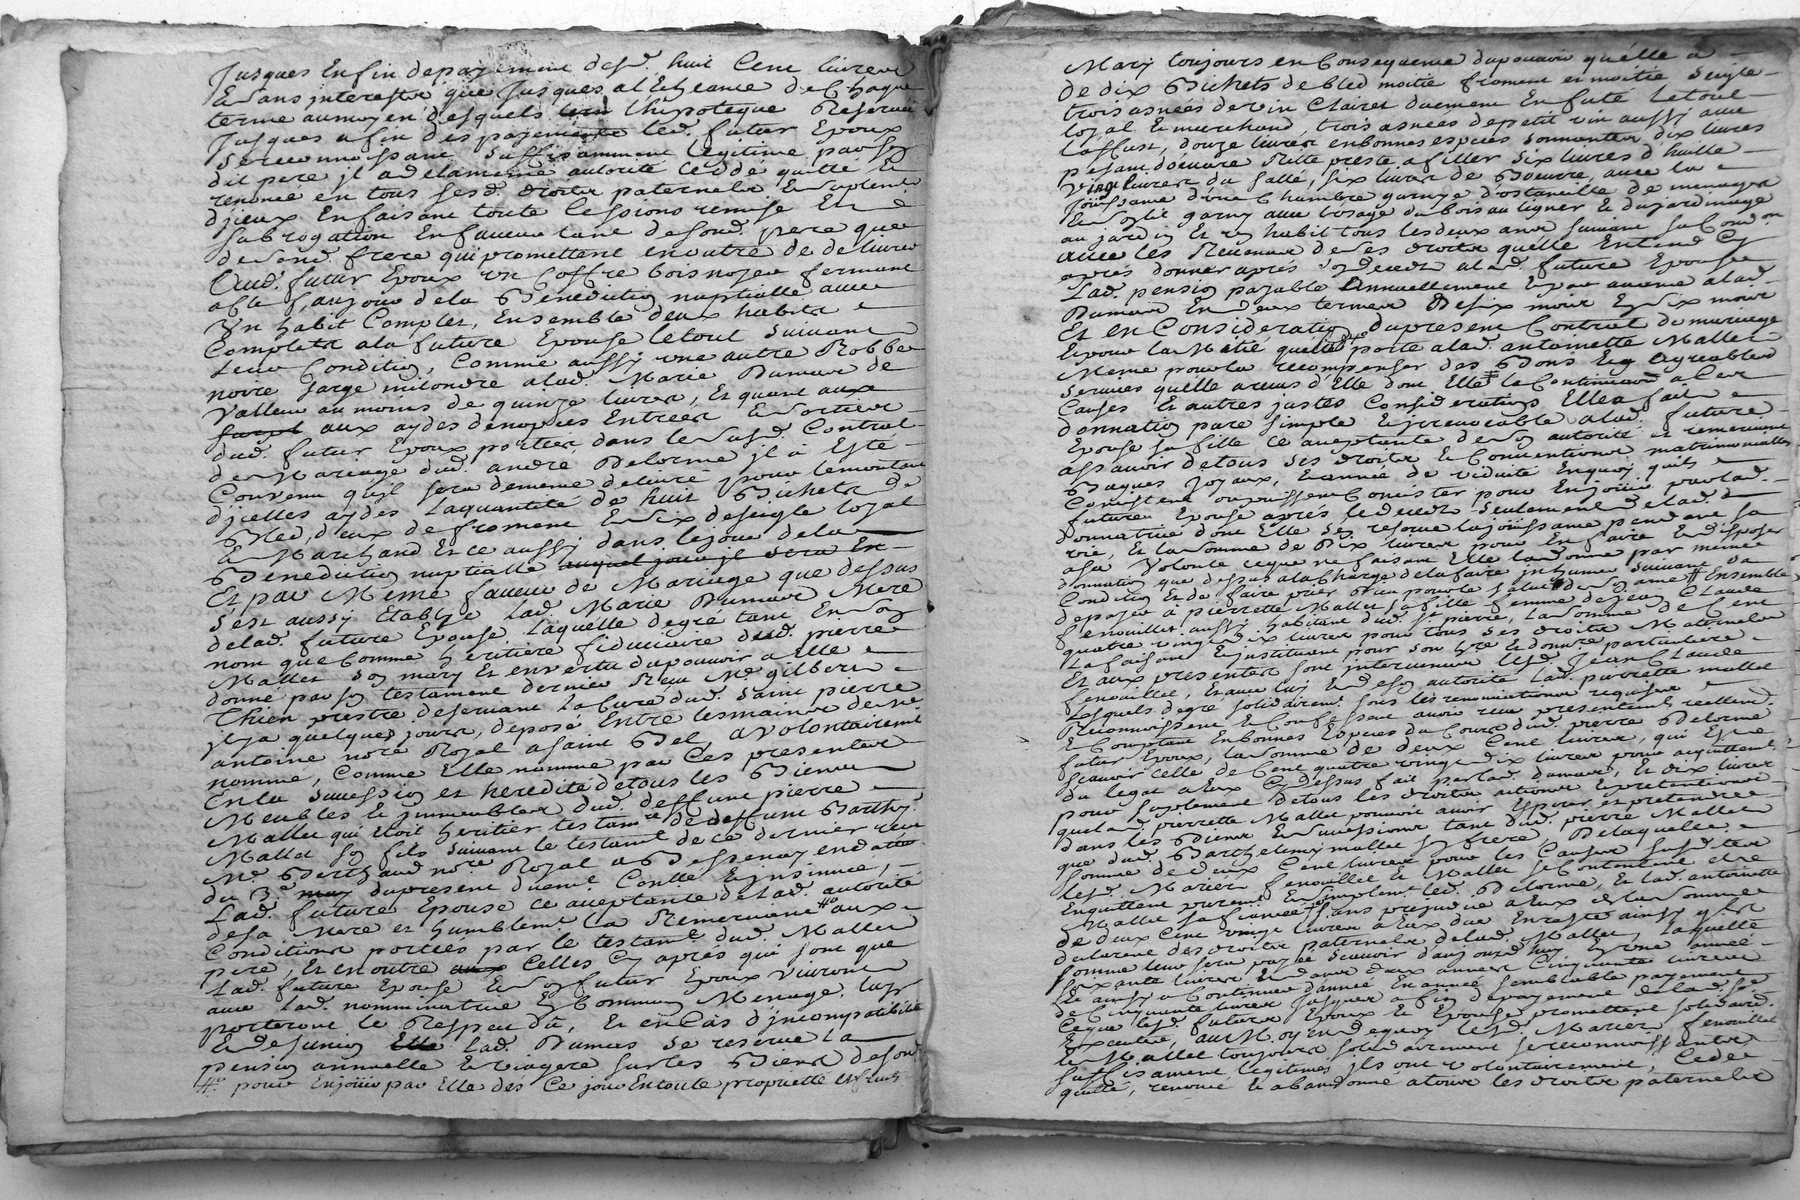 Jusques Enfin depayement desd. huit Cent livres
Et sans interestz que Jusques al Echeance de Chaque
terme aumoyen desquels lhipoteque Reservée
Jusques afin des payements led. futur Epoux
Sereconnoissant Suffisamment Legitimé par son
dit pere il adelameme autorité Cedde quitté et
renoncé en tous sesd. droitz paternelz Et suplement
d'jceux Enfaisant toute Cessions remise Et
Subrogation Enfaveur tant desond. pere que
desond. frere qui promettent enoutre de delivrer
Aud. futur Epoux un Coffre bois noyer fermant
a Clef, aujour dela Benediction nuptialle avec
Un habit Complet, Ensemble deux habitz
Completz ala future Epouse letout Suivant
Leur Condition, Comme aussy une autre Robbe
noire Sarge alad. Marie Dumas de
Valleur au moins de quinze livres, Et quant aux
aux aydes denopces Entrées Et sorties
dud. futur Epoux portées dans le susd. Contrat
de Mariage dud. andré Delorme jl à Esté
Convenu qu'jl sera dememe delivré pour lemontant
d'jcelles aydes Laquantité de huit Bichets de
Bled, deux de froment Et six deseigle loyal
Et Marchand Et ce aussy dans lejour dela
Benediction nuptialle auquel jour jl sera En
Et par Meme faveur de Mariage que dessus
s'est aussy Etablye Lad. Marie Dumas Mere
delad. future Epouse Laquelle degré tant En son
nom que Comme heritiere fiduciaire dud. pierre
Mallet son mary Et envertu dupouvoir a Elle
donné par son testament dernier Reçu Me gilbert
Thien prestre deservant La Cure dud. Saint pierre
jl ya quelques jours, deposé Entre lesmains de Me
antoine nore Royal asaint Bel a Volontairement
nommé, Comme Elle nomme par Ces presentes
En la succession et heredité detous les Biens
Meubles Et jmmeubles dud. deffunt pierre
Mallet qui Etoit heritier testamre de deffunt Barthy.
Mallet son fils suivant le testamt de ce dernier reçu
Me Berthaud nore Royal a Bessenay endatte
du 3e may dupresent duemt Conllé Et jnsinué,
Lad. future Epouse ce aceptante delad. autorité
desa Mere et humblemt La Remerciant # aux
Conditions portées par le testamt dud. Mallet
pere, Et enoutre aux Celles Cy après qui sont que
Lad. future Epouse Et son futur Epoux Vivront
avec Lad. nominatrice En Commun Menage, luy
porteront le Respect dû, Et en Cas d'jncompatibilité
Et desunion Elle Lad. Dumas se reserve La
pension annuelle Et viagere surles Biens desond.
# pour Enjouir par Elle des Ce jour Entoute propriette usfruit
Mary toujours en Consequence dupouvoir quelle à
de dix Bichets de bled moitie froment et moitie Seigle
trois asnées de vin Clairet duement En futé letout
loyal Et marchand, trois asnées depetit vin aussy avec
Laffust, douze livres enbonnes especes sonnantes, dix livres
pesant doeuvre Ritte preste afiller six livres d'huille
Vingt livres du sallé, six livres de Beurre, avec la
Jouissance d'une Chambre garnye d'ostancille de menager
Et un lit garny avec Lusage du bois au ligner Et dujardinage
au jardin Et un habit tous lesdeux ans suivant sa Condon
avec les Revenus de ses droitz quelle Entend Cy
après donner après son decedz alad. future Epouse
Lad. pension payable annuellement Et par avance alad.
Dumas En deux termes de six mois En six mois
Et en Consideration du present Contrat de mariage
Epour La Mitié quelle porte alad. antoinette Mallet
Meme pour la recompenser des Bons Et agreables
services quelle arecus d'Elle dont Elle le Continuera a ler
Causes Et autres justes Considerations Elle a fait
donnation pure simple Et jrrevocable alad. future
Epouse sa fille ce aceptante de son autorité et remerciant
assavoir detous ses droitz Et Conventions matrimonialles
Bagues Joyaux, Et année de viduité Enquoy quils
Consistent ou puissent Consister pour Enjouir par lad.
future Epouse après le decedz seulement delad.
donnatrice dont Elle sen reserve lajouissance pendant sa
vie, Et la somme de Dix livres pour En faire Et disposer
asa Volonté ceque ne faisant Elle la donne par meme
donnation que dessus ala Charge dela faire jnhumer suivant sa
Condition Et de faire prier Dieu pour le salut de son ame # Ensemble
depayer à pierrette Mallet sa fille femme de Jean Claude
fenouillet aussy habitant dud. St. pierre, La somme de Cent
quatre vingt dix livres pour tous ses droitz Maternelz
La faisant Et jnstituant pour son hre Et donnre particuliere
Et aux presentes sont jntervenus lesd. Jean Claude
fenouillet, Et avec luy Et de son autorité Lad. pierrette mallet
Lesquels degré solidairemt sous les renonciations requises
Reconnoissent Et Confessent avoir reçu presentemt reellemt
Et Comptant Enbonnes Especes du Cours dud. pierre Delorme
futur Epoux, la somme de deux Cent livres, qui Est
scavoir celle de Cent quatre vingt dix livres pour acquittemt
du legat a Eux Cydessus fait par lad. dumas, Et dix livres
pour suplement detous les droitz actions Et pretentions
quelad. pierrette Mallet pouvoit avoir Esperer et pretendre
dans les Biens Et successions tant dud. pierre Mallet
que dud. Barthelemy mallet son frere De laquelle
Somme de deux Cent livres pour les Causes susdittes
lesd. Mariez fenouillet Et Mallet se Contentent et en
Enquittent purement Et simplement led. Delorme, Et lad. antoinette
Mallet sa fiancée sans prejudice a Eux dela somme
de deux Cent vingt livres a Eux due Enreste ainsy quils
declarent des droitz paternelz delad. Mallet, Laquelle
somme leur sera payée scavoir daujourd'huy En une année
soixante livres Et dans deux années Cinquante livres
Et ainsy a Continuer d'année En année semblable payement
de Cinquante livres Jusques a fin depayement de lad. Se
Ceque lesd. futurs Epoux Et Epouse promettent solidairt
Executer, au Moyen dequoy lesd. Mariez fenouillet
Et Mallet toujours solidairement se reconnoissantz
suffisament legitimés jls ont volontairement, Cedé
quitté, renoncé Et abandonné atous les droitz paternelz